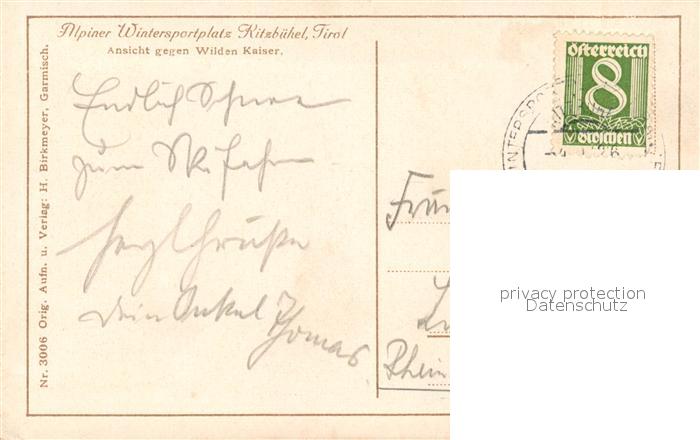 Alpiner Wintersportplatz Kitzbühel, Tirol
Ansicht gegen Wilden Kaiser.
Nr. 3006 Orig. Aufn. u. Verlag: H. Birkmeyer, Garmisch.
Endlich Schnee
zum Ski fahren
herzl Grüße
dein Onkel Thomas
Österreich
8
Groschen
WINTERSPO
Rhein
privacy protection
Datenschutz